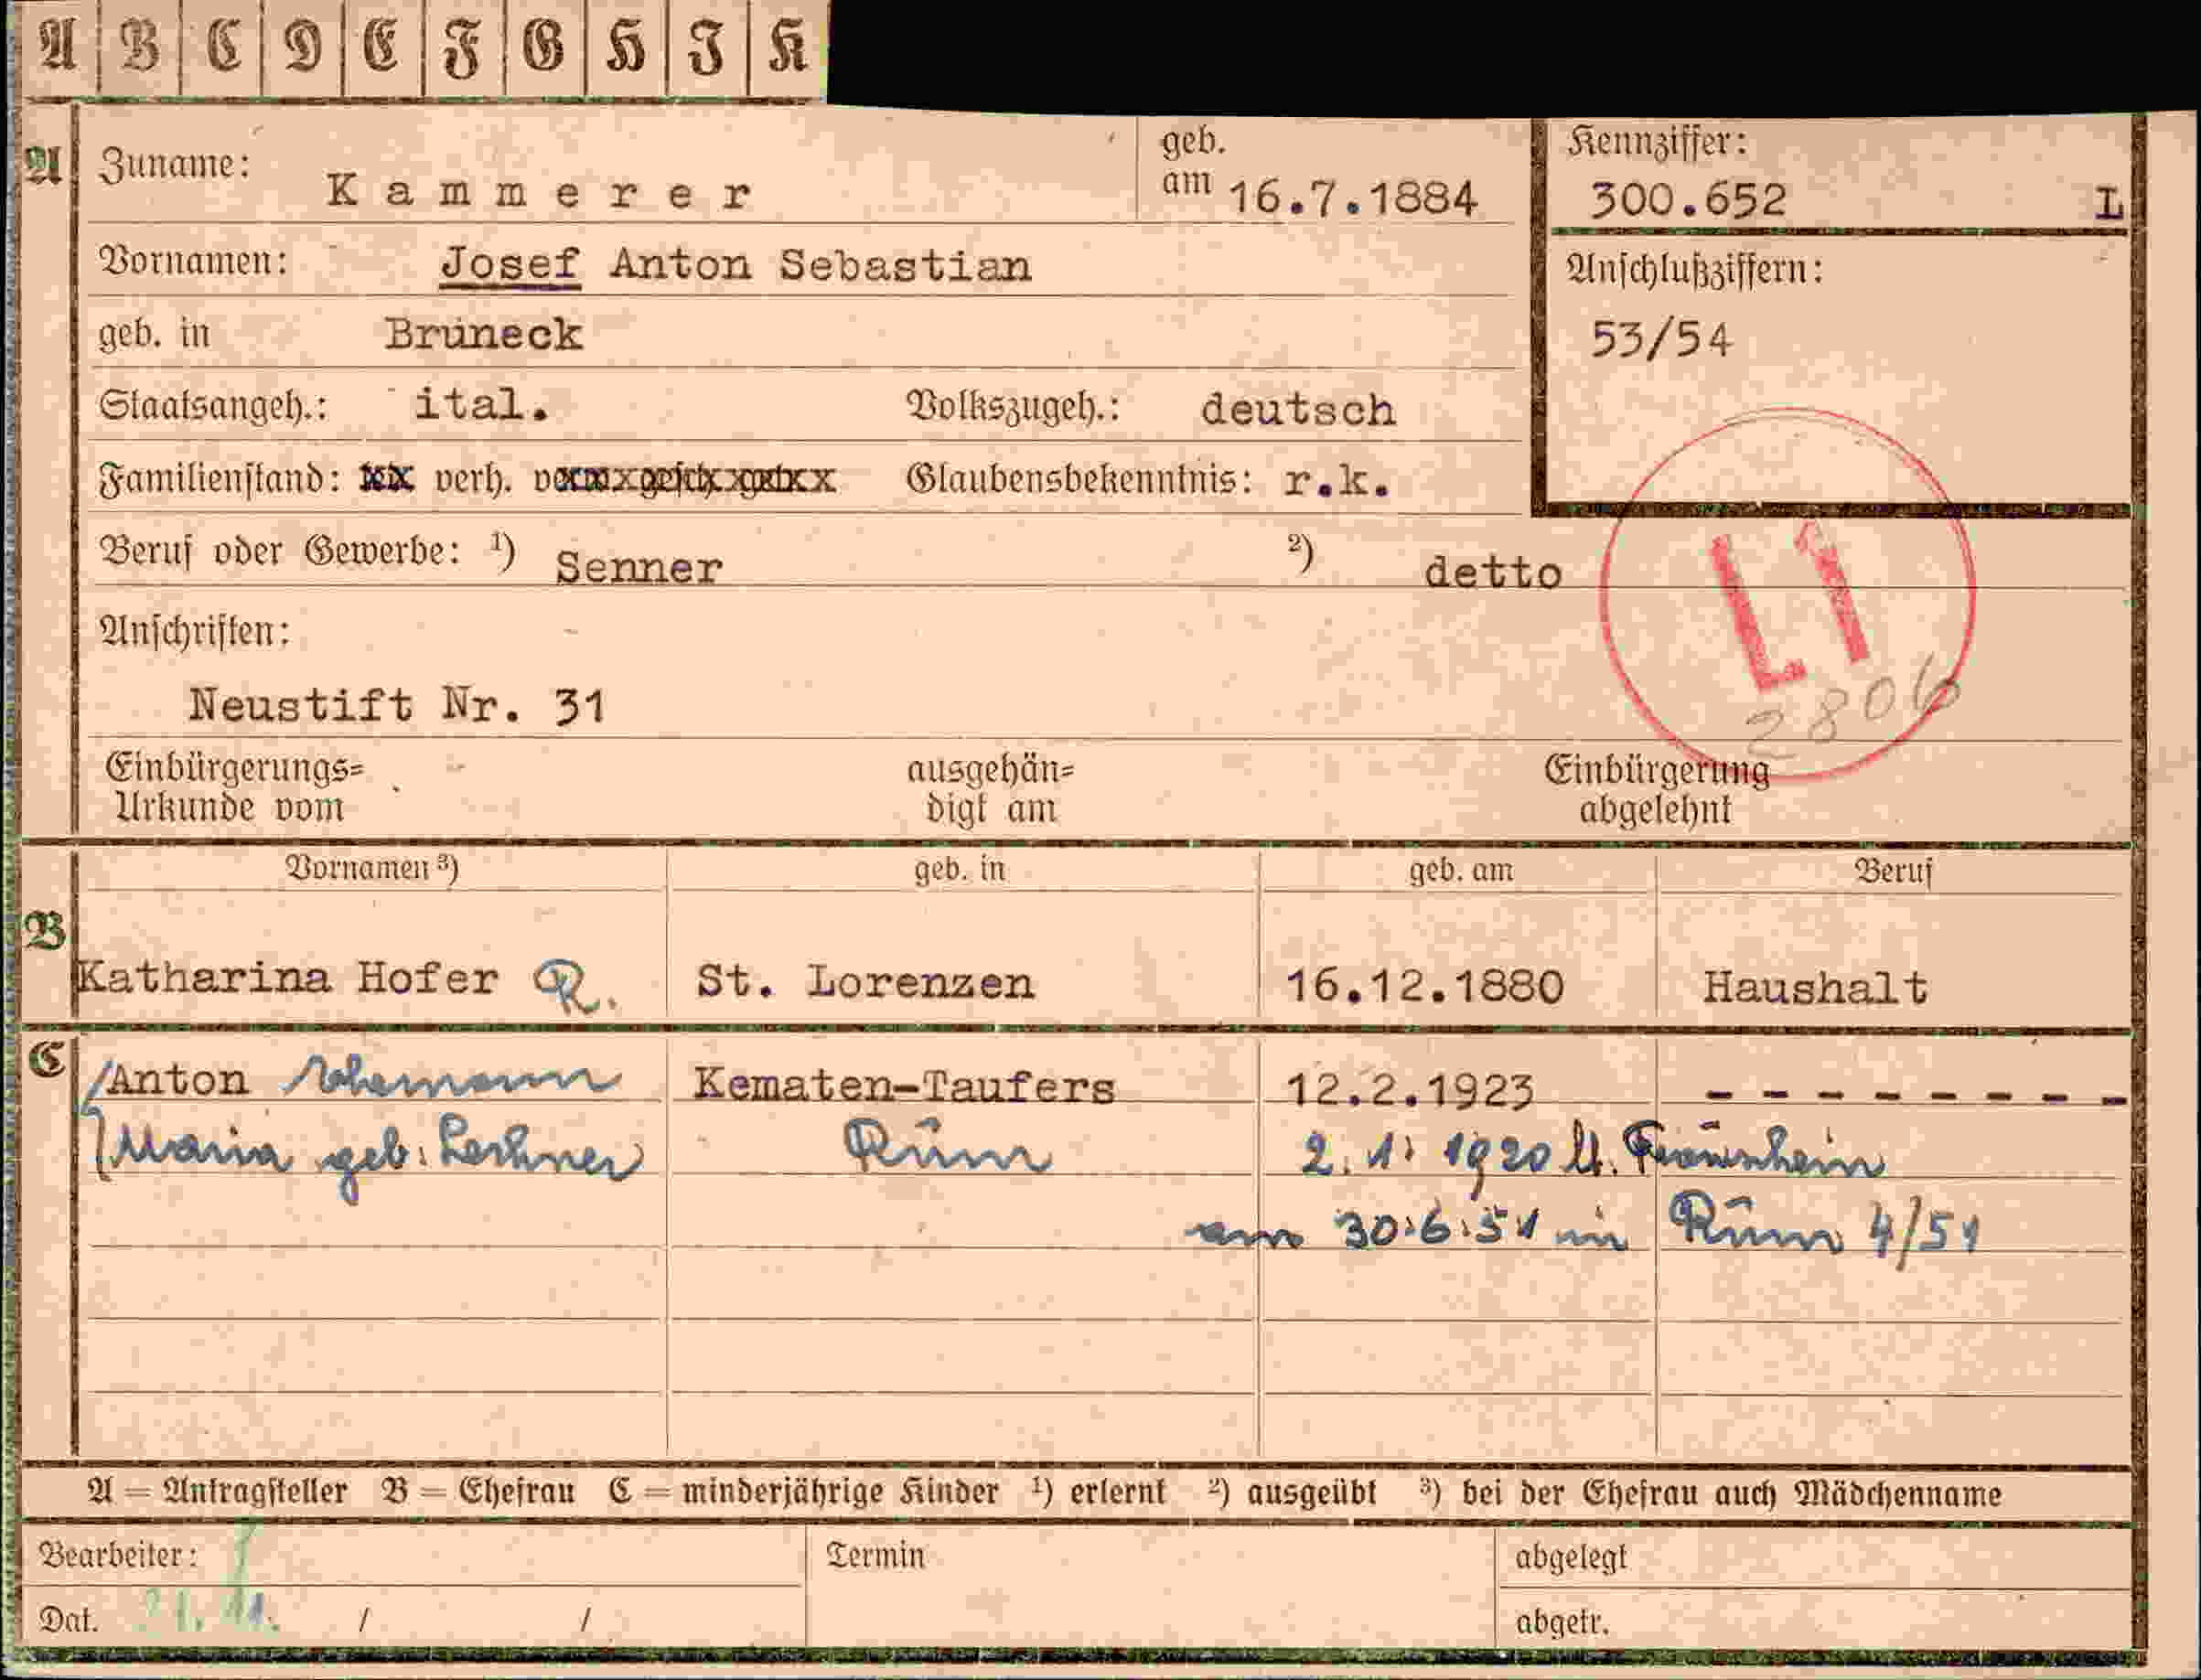 A B C D E F G H J K
A
Zuname: Kammerer
geb. am 16.7.1884
Kennziffer:
300.652 L
Vornamen: Josef Anton Sebastian
Anschlußziffern:
53/54
geb. in Bruneck
Staatsangeh.: ital. Volkszugeh.: deutsch
Familienstand: verh. Glaubensbekenntnis: r.k.
Beruf oder Gewerbe: 1) Senner 2) detto
L1
2806
Anschriften:
Neustift Nr. 31
Einbürgerungs=
Urkunde vom
ausgehän=
digt am
Einbürgerung
abgelehnt
B
Vornamen 3) geb. in geb. am Beruf
Katharina Hofer R. St. Lorenzen 16.12.1880 Haushalt
C
Anton Kematen-Taufers 12.2.1923 - - - - - - - -
Maria geb. Lechner Rum 2.1.1920 lt.
am 30.6.51 in Rum 4/51
A = Antragsteller B = Ehefrau C = minderjährige Kinder 1) erlernt 2) ausgeübt 3) bei der Ehefrau auch Mädchenname
Bearbeiter: Termin abgelegt
Dat. / / abgetr.